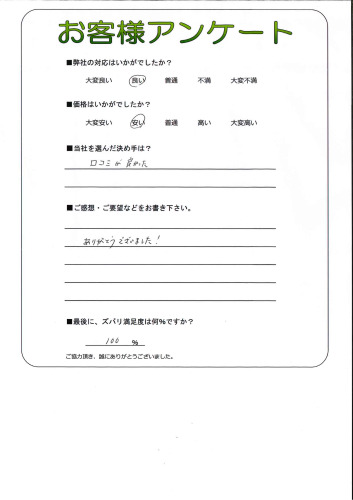 お客様アンケート
■弊社の対応はいかがでしたか？
大変良い 良い 普通 不満 大変不満
■価格はいかがでしたか？
大変安い 安い 普通 高い 大変高い
■当社を選んだ決め手は？
口コミが良かった
■ご感想・ご要望などをお書き下さい。
ありがとうございました！
■最後に、ズバリ満足度は何%ですか？
100 %
ご協力頂き、誠にありがとうございました。